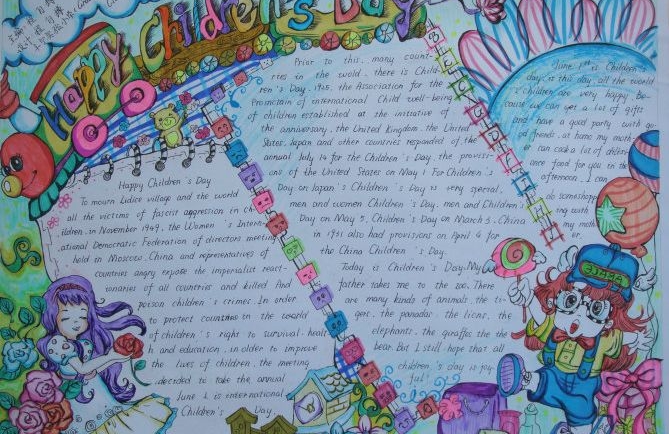 Happy Children's Day
Prior to this, many count-
ries in the wold, there is Child-
ren's Day. 1925, the Association for the
Promctain of international Child well-being
of children established at the initiative of
the anniversary, the United Kingdom, the United
States, Japan and other countries responded of the
annual July 14 for the Children's Day, the provisi-
ons of the United States on May 1 For Children's
Day on Japan's Children's Day is very special,
men and women Children's Day, men and Children's
Day on May 5, Children's Day on March 5. China
in 1931 also had provisions on April 4 for
the China Children's Day.
Today is Children's Day. My
father takes me to the zoo. There
are many kinds of animals, the ti-
gers, the pandas, the lions, the
elephants, the giraffes the the
bear. But I still hope that all
children's day is joy-
ful
Happy Children's Day
To mourn Lidice village and the world
all the victims of fascist aggression in ch-
ildren, in November 1949, the Women's Intern-
ational Democratic Federation of directors meeting
held on Moscow, China and representatives of
countries angry expose the imperialist react-
ionaries of all countries and killed And
poison children's crimes. In order
to protect countries in the world
of children's right to survival, healt
h and education, in older to improve
the lives of children, the meeting
decided to take the annual
June 1. is international
Children's Day.
June 1st is Children's
day, is this day all the world
Children are very happy. Be-
cause we can get a lot of gifts
and have a good party with go-
od friends. at home, my moth-
er can cook a lot of differ-
ence food for you in the
afternoon. I can
do someshopp
ing with
my moth
er.